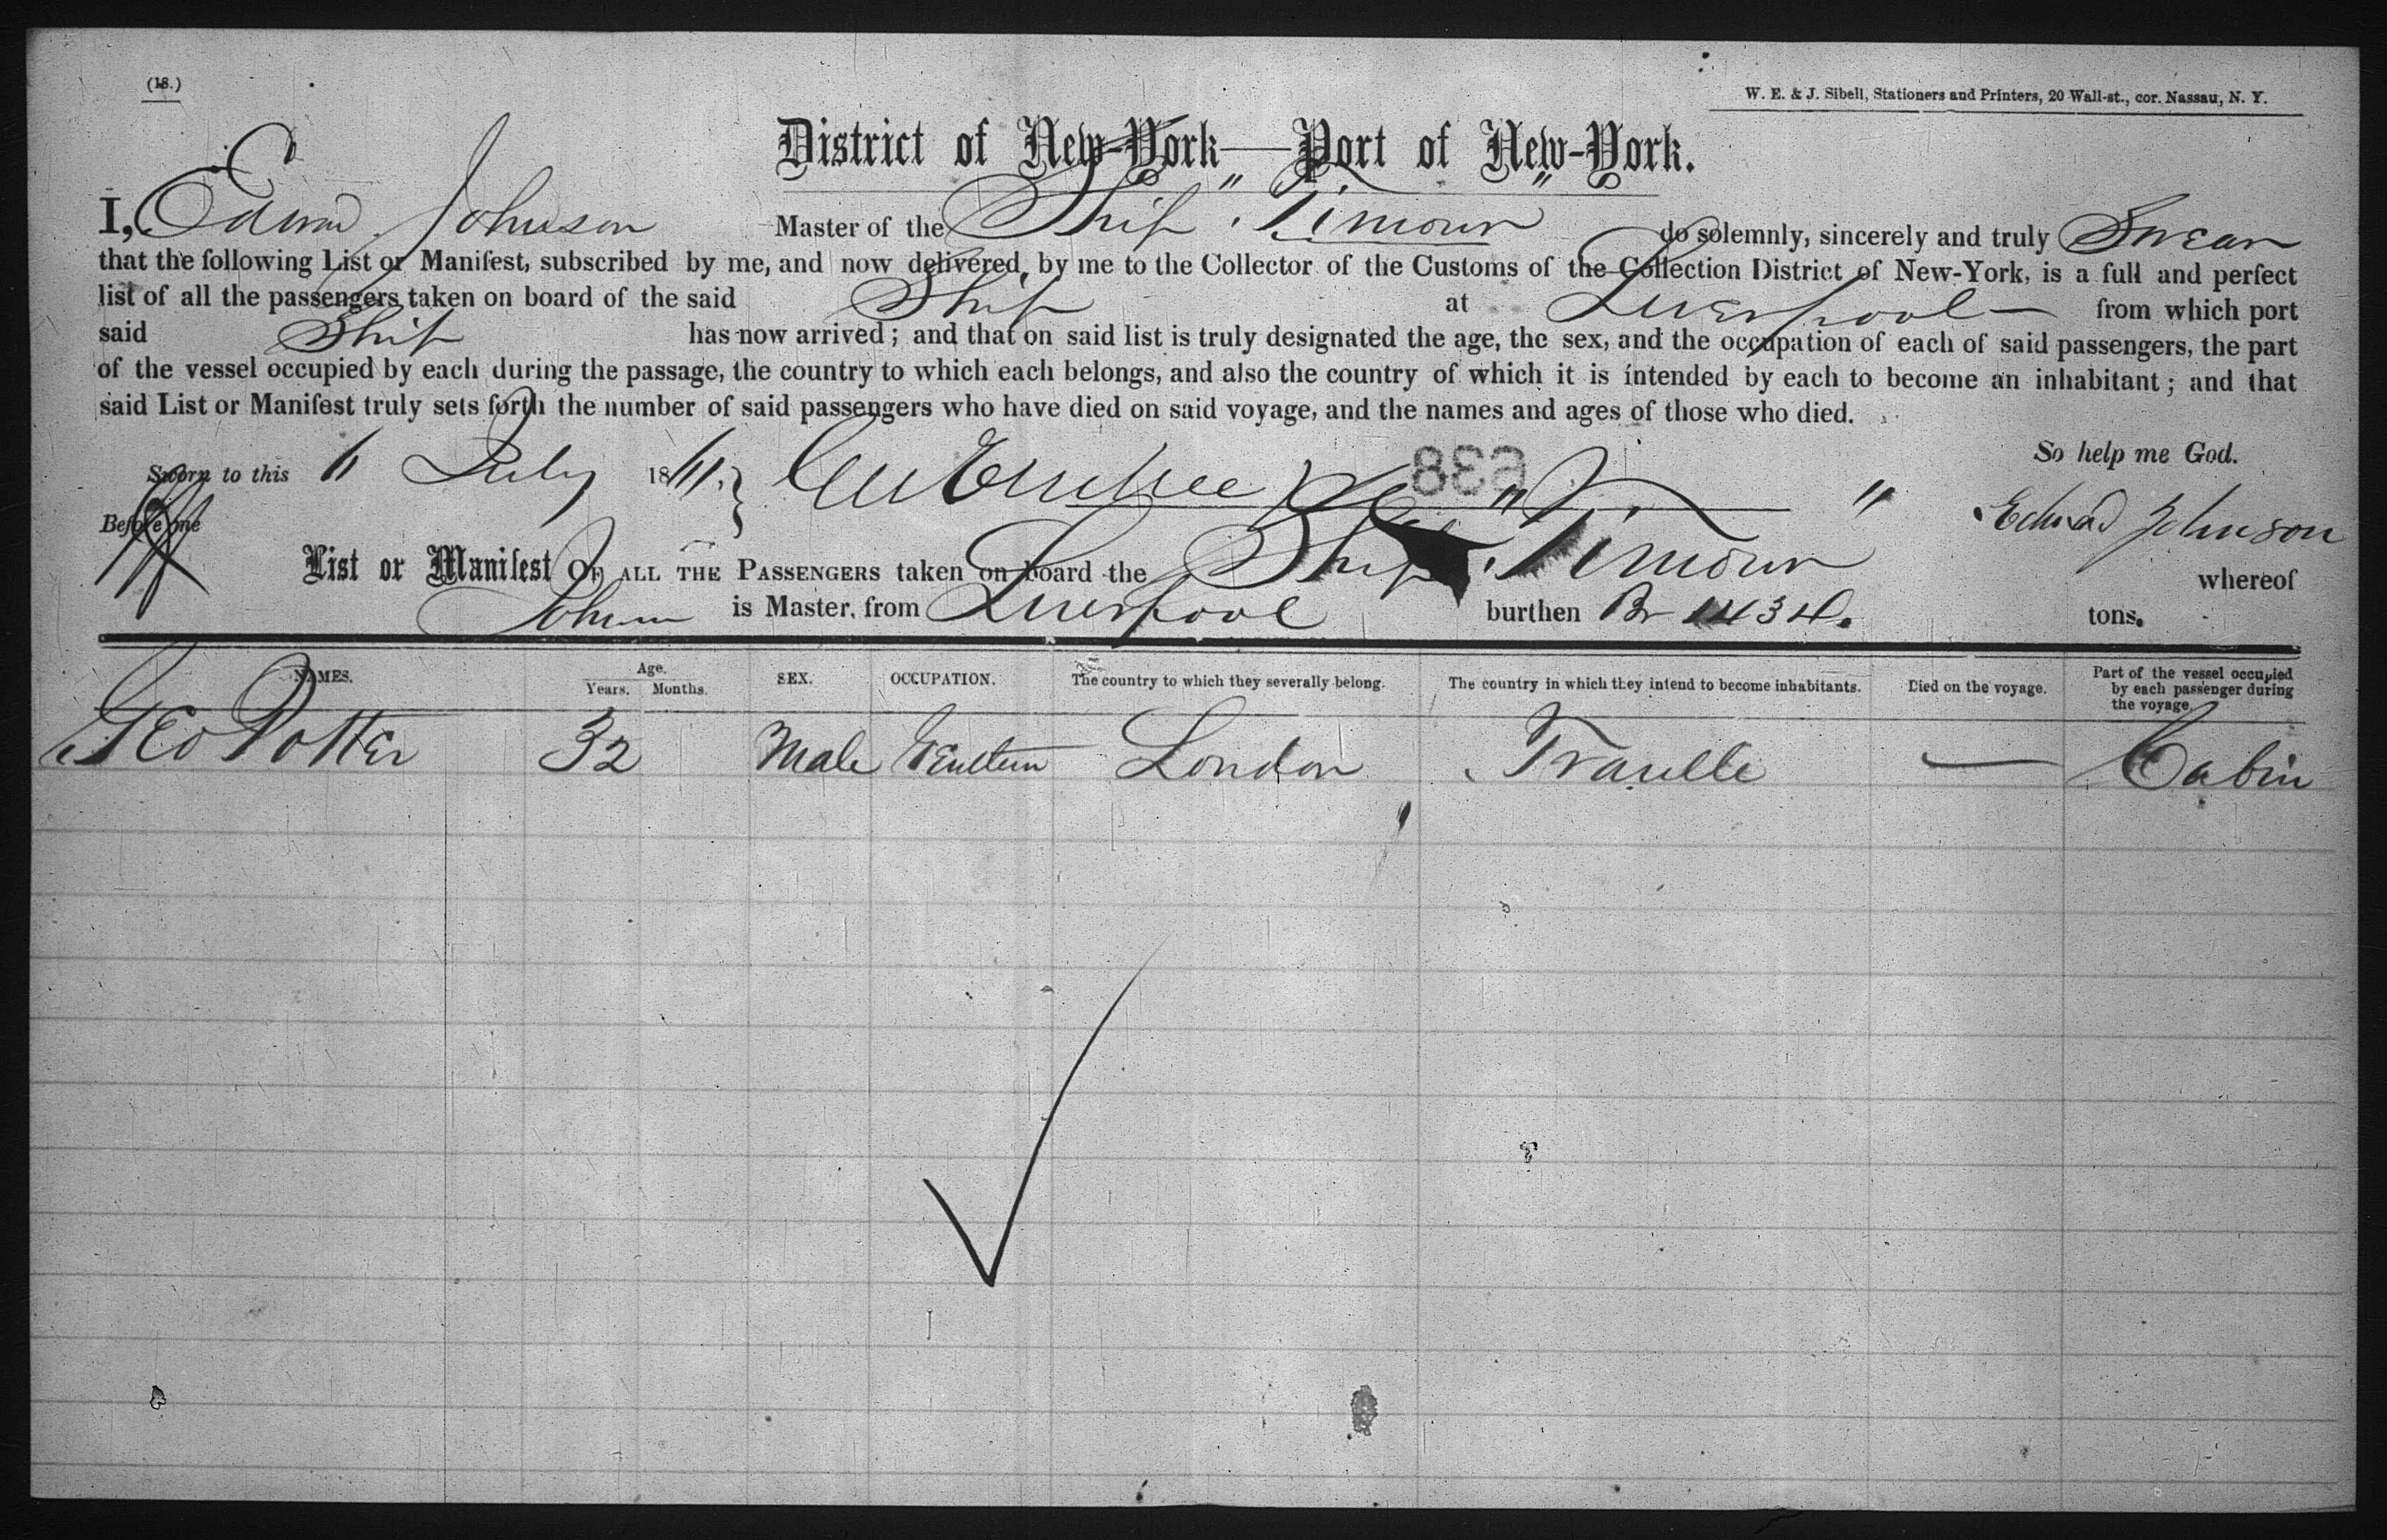 (18.)
W. E. & J. Sibell, Stationers and Printers, 20 Wall-st., cor. Nassau, N. Y.
District of New-York—Port of New-York.
I, Edward Johnson Master of the Ship "Timour" do solemnly, sincerely and truly Swear
that the following List or Manifest, subscribed by me, and now delivered, by me to the Collector of the Customs of the Collection District of New-York, is a full and perfect
list of all the passengers taken on board of the said Ship at Liverpool from which port
said Ship has now arrived; and that on said list is truly designated the age, the sex, and the occupation of each of said passengers, the part
of the vessel occupied by each during the passage, the country to which each belongs, and also the country of which it is intended by each to become an inhabitant; and that
said List or Manifest truly sets forth the number of said passengers who have died on said voyage, and the names and ages of those who died.
So help me God.
Sworn to this July 186
Before me
Edward Johnson
List or Manifest OF ALL THE PASSENGERS taken on board the Ship "Timour" whereof
Johnson is Master, from Liverpool burthen Br 1434 tons.
NAMES. Age. Years. Months. SEX. OCCUPATION. The country to which they severally belong. The country in which they intend to become inhabitants. Died on the voyage. Part of the vessel occupied by each passenger during the voyage.
Geo Potter 32 Male London — Cabin